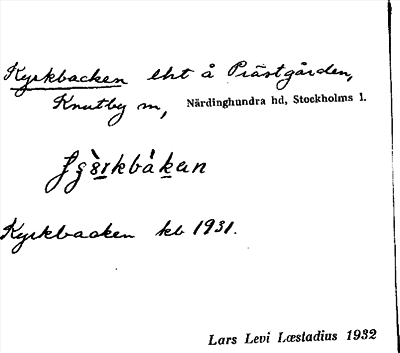 Kyrkbacken lht å Prästgården,
Knutby sn, Närdinghundra hd, Stockholms l.
Kyrkbacken kb 1931.
Lars Levi Læstadius 1932